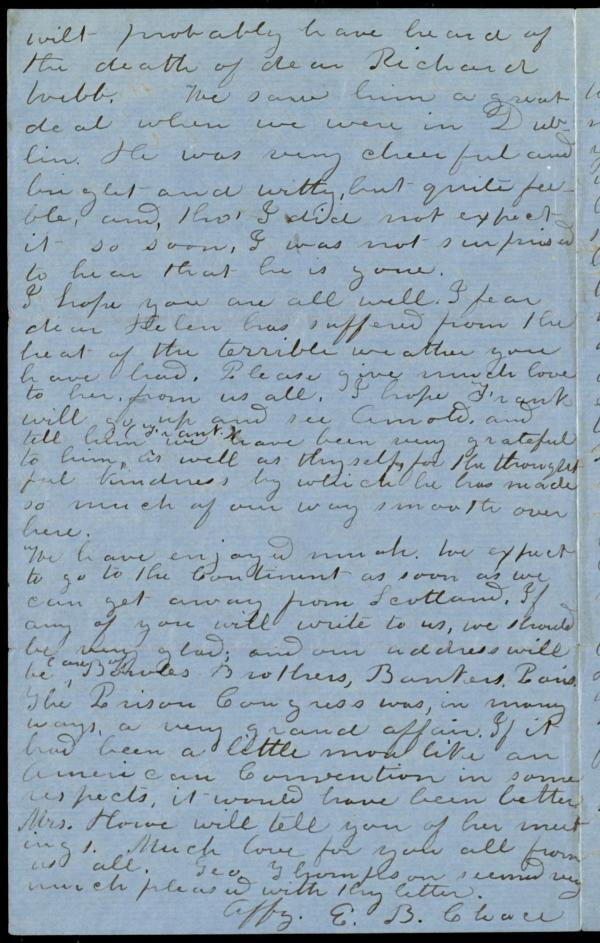 wilt probably have heard of
the death of dear Richard
Webb. We saw him a great
deal when we were in Dub-
lin. He was very cheerful and
bright and witty, but quite fee-
ble, and, tho' I did not expect
it so soon, I was not surprised
to hear that he is gone.
I hope you are all well. I fear
dear Helen has suffered from the
heat of the terrible weather you
have had. Please give much love
to her from us all. I hope Frank
will go up and see Arnold. and
tell him (Frank) we have been very grateful
to him, as well as thyself, for the thought
ful kindness by which he has made
so much of our way smooth over
here.
We have enjoyed much. We expect
to go to the Continent as soon as we
can get away from Scotland. If
any of you will write to us, we should
be very glad; and our address will
be, care of Bowles Brothers, Bankers. Paris.
The Prison Congress was, in many
ways, a very grand affair. If it
had been a little more like an
American Convention in some
respects, it would have been better
Mrs. Howe will tell you of her meet
ings. Much love for you all from
us all. Geo. Thompson seemed very
much pleased with thy letter.
Affy. E. B. Chace